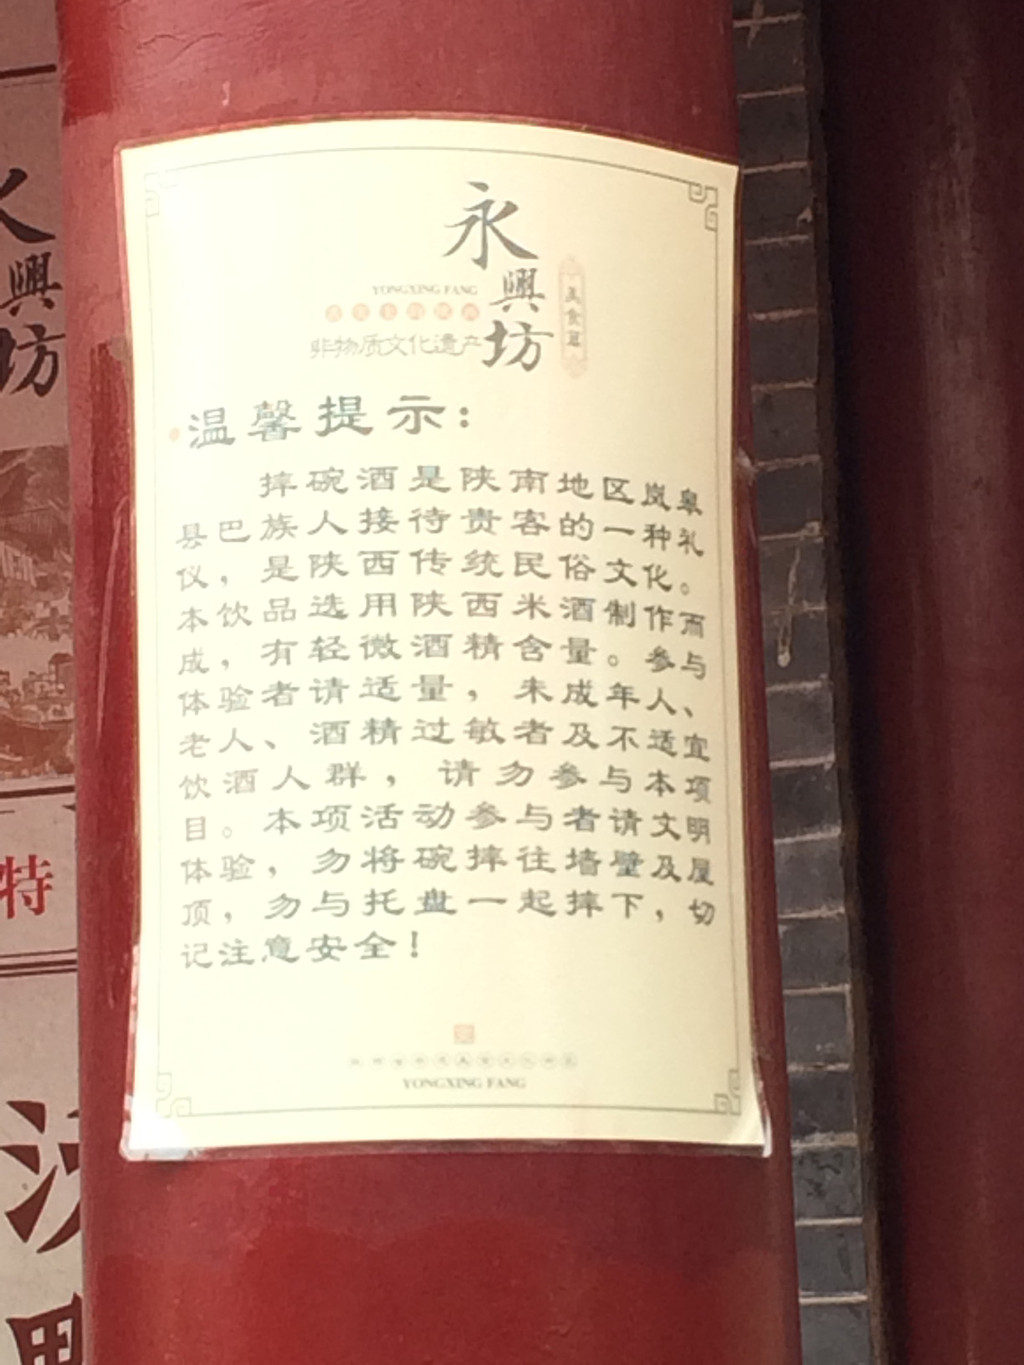 永
興
坊
YONGXING FANG
美食荟
舌尖上的陕西
非物质文化遗产
温馨提示:
摔碗酒是陕南地区岚皋
县巴族人接待贵客的一种礼
仪，是陕西传统民俗文化。
本饮品选用陕西米酒制作而
成，有轻微酒精含量。参与
体验者请适量，未成年人、
老人、酒精过敏者及不适宜
饮酒人群，请勿参与本项
目。本项活动参与者请文明
体验，勿将碗摔往墙壁及屋
顶，勿与托盘一起摔下，切
记注意安全！
YONGXING FANG
興
坊
特